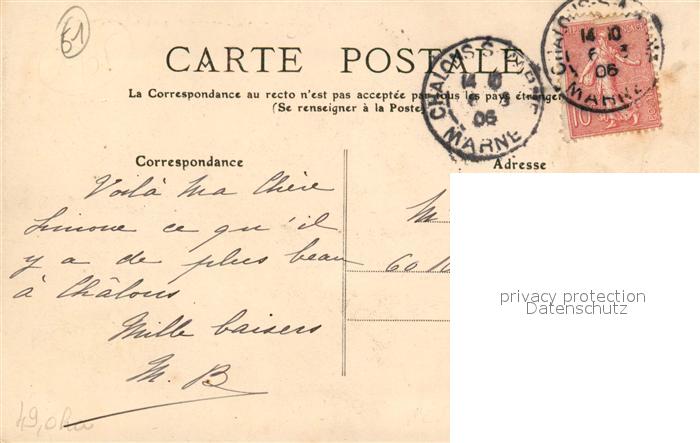 51
CARTE POSTALE
La Correspondance au recto n'est pas acceptée par tous les pays étrangers
(Se renseigner à la Poste)
CHALONS-S-MARNE
14 10
6 3
06
MARNE
CHALONS-S-MARNE
14 10
6 3
06
MARNE
10
Correspondance
Adresse
Voilà Ma Chère
Simone ce qu'il
y a de plus beau
à Châlons
Mille baisers
M. B
60
privacy protection
Datenschutz